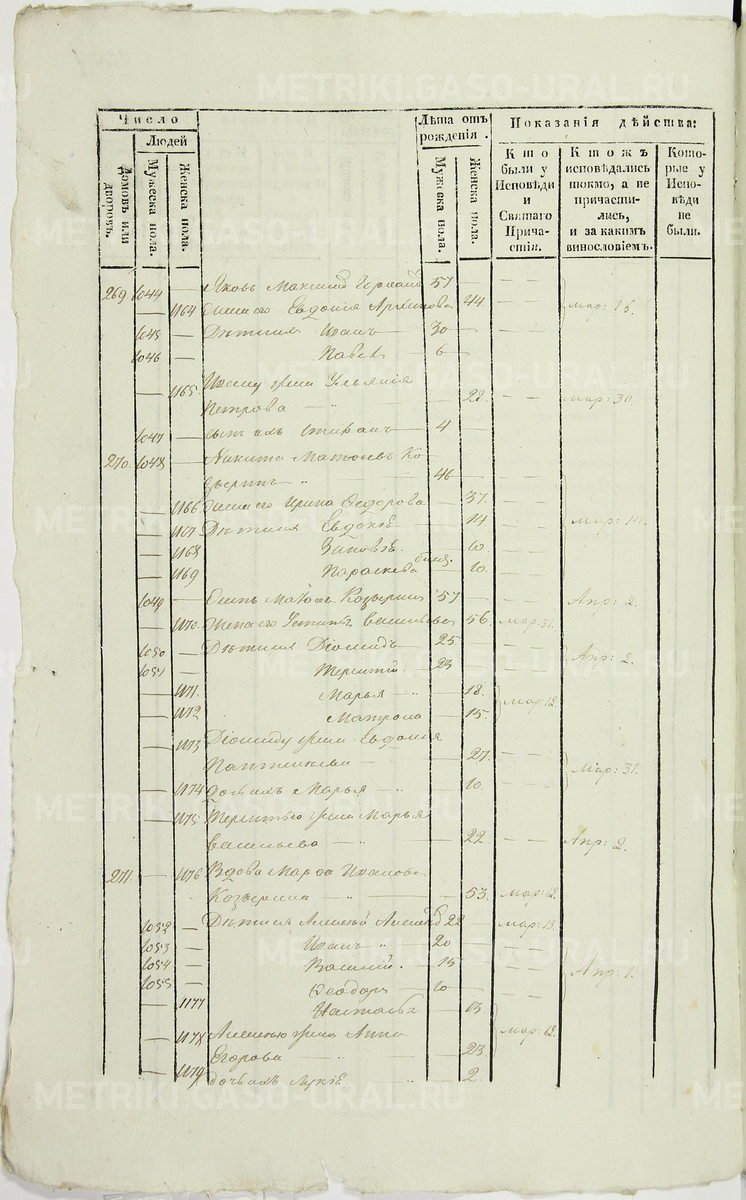 METRIKI.GASO-URAL.RU
Число
Людей
Домовъ или дворовъ.
Мужеска пола.
Женска пола.
Лѣта отъ рожденія.
Мужеска пола.
Женска пола.
Показанія дѣйства:
Кто были у Исповѣди и Святаго Причастія.
Кто жъ исповѣдались токмо, а не причастились, и за какимъ винословіемъ.
Которые у Исповѣди не были.
269 1044 — Яковъ Максимовъ 57 — —
— 1164 Жена его Евдокія Архипова 44. — — Мар: 16.
1045 — Дѣти ихъ Иванъ — 30 — — —
1046 — Павелъ 6 —
— 1165 Ивану жена Ульянія
Петрова — 28. — — Мар: 30
1047 — сынъ ихъ Степанъ — 4 —
270. 1048 — Никита Матвѣевъ Ко
зыринъ — 46 — — —
— 1166 Жена его Ирина Ѳедорова 37. — —
— 1167 Дѣти ихъ Евдокія — 14 — — Мар: 14.
— 1168 Зиновія. — 10 — —
— 1169 Параскева близ. — 10. — —
1049 — Козыринъ 57 — — — Апр: 2.
— 1170. Жена его Устинья Васильева 56. Мар: 31.
1050 — Дѣти ихъ Діомидъ — 25 — — —
1051 — Терентій 23 — — — Апр: 2.
— 1171. Марья — 18.
— 1172 Матрона — 15. Мар: 12.
— 1173 Діомиду жена Евдокія
— 27. — —
— 1174 дочь ихъ Марья — 10. — — Мар: 31.
— 1175 Терентью жена Марья
Васильева — 22 — — Апр: 2.
271. — 1176 Вдова Марфа Иванова
Козырина — 53. Мар: 12.
1052 — Дѣти ея Алексѣй 22 Мар: 13.
1053 — Иванъ 20 — — —
1054 — Василій. 15 — — — Апр: 1.
1055 — Ѳеодоръ — 10 — — —
— 1177 Наталья — 13
— 1178 Алексѣю жена Анна
Егорова — 23. Мар: 12.
— 1179 дочь ихъ — 2.